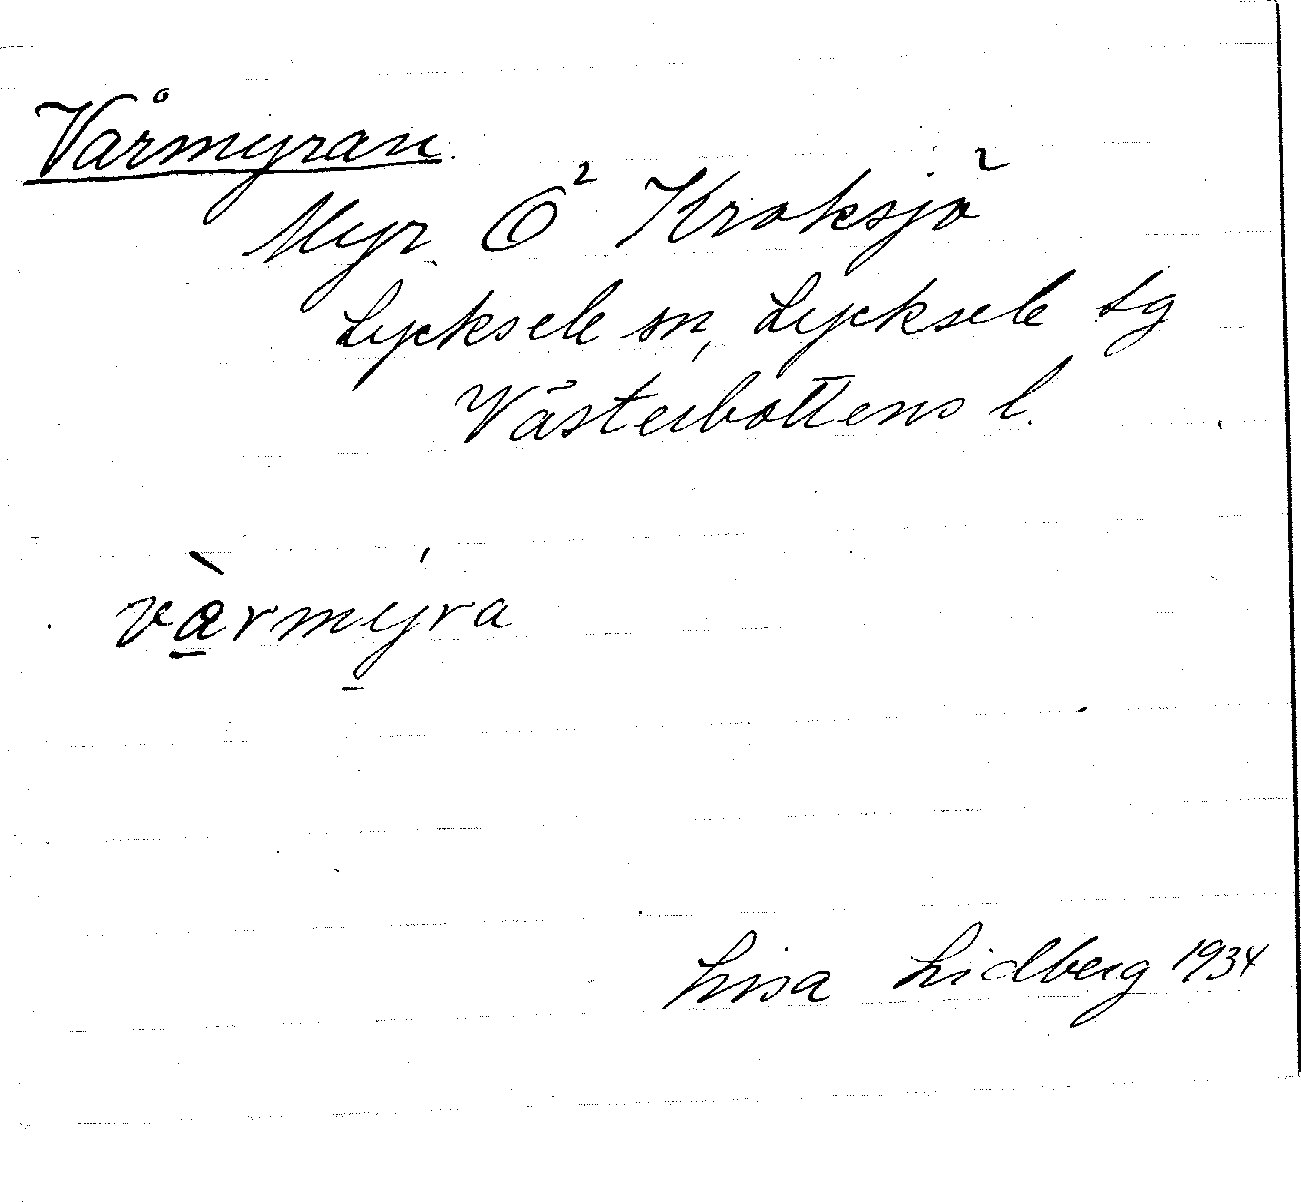 Vårmyran.
Myr Ö Kroksjö
Lycksele sn, Lycksele tg
Västerbottens l.
vàrmýra
Lisa Lidberg 1934